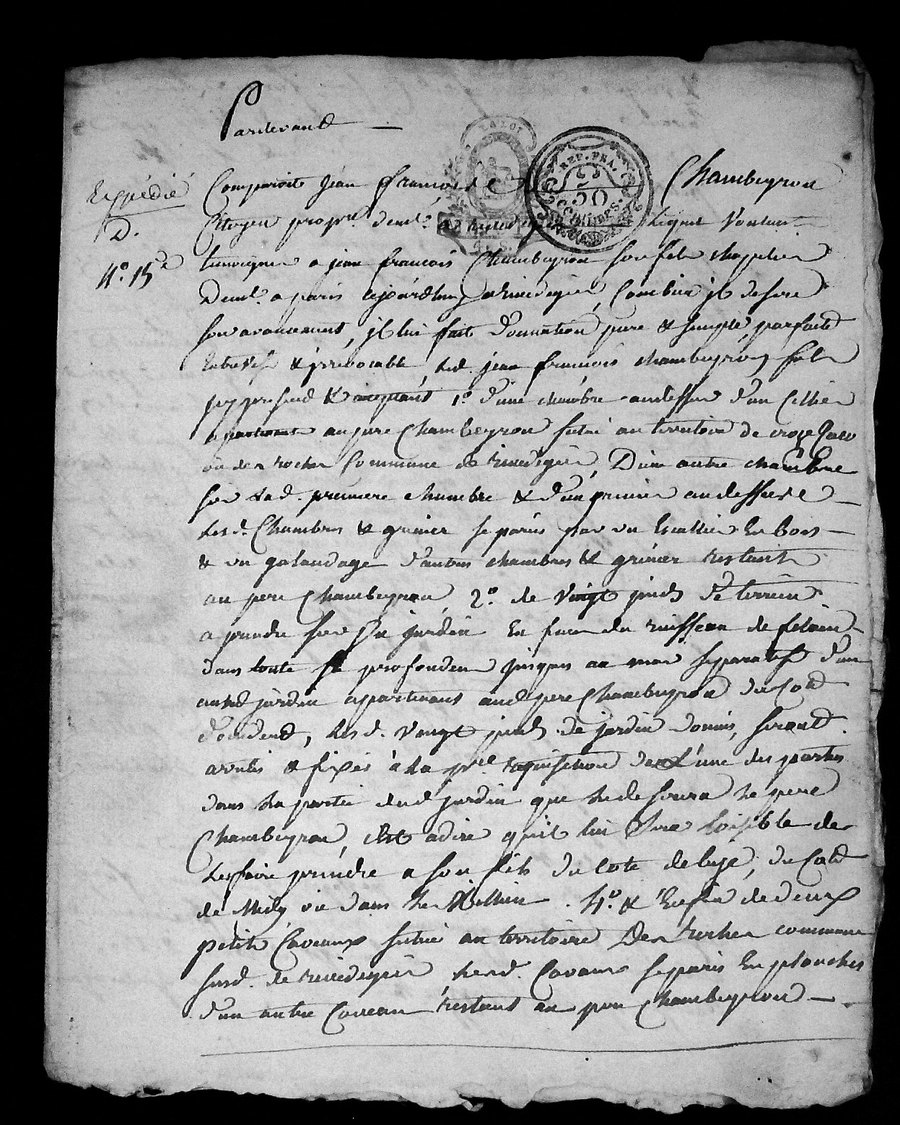 Pardevant
Expédié
D.
4.° 15.c
LA LOI
REP. FRA.
50
CENTIMES
Comparoit jean françois Chambeyron
Citoyen propre. demt. Voulant
temoigner a jean françois Chambeyron son fils chapelier
Demt. a paris Combien il desire
son avancement, il lui fait Donnation pure & simple, parfaite
entrevifs & irrevocable, aud. jean françois chambeyron fils
& acceptant 1.° d'une chambre audessus d'un Cellier
au pere Chambeyron situé au territoire de
ou des rocher Commune de rivedegier, D'un autre chambre
sur lad. premiere chambre & d'un grenier audessus
Lesd. Chambres & grenier separés par un Escallier En bois
& un galandage d'autres chambres & grenier restant
au pere Chambeyron, 2.° de Vingt pieds De terrein
a prendre sur Un jardin En face du ruisseau de
dans toute sa profondeur jusques au mur separatif d'un
autre jardin appartenant aud. pere Chambeyron du Coté
d'occident, Lesd. Vingt pieds de jardin donnés, seront
& fixés à La pre. requisition de L'une des parties
dans La partie dud. jardin que Le pere
Chambeyron, c'est adire qu'il lui sera loisible de
Les faire prendre a son fils du Coté de bize, du Coté
de Midy ou dans Le Millieu. 4.° & Enfin de deux
petits Caveaux situés au territoire Des rocher commune
susd. de rivedegier Lesd. Caveaux separés En planches
d'un autre Caveau restant au pere Chambeyron